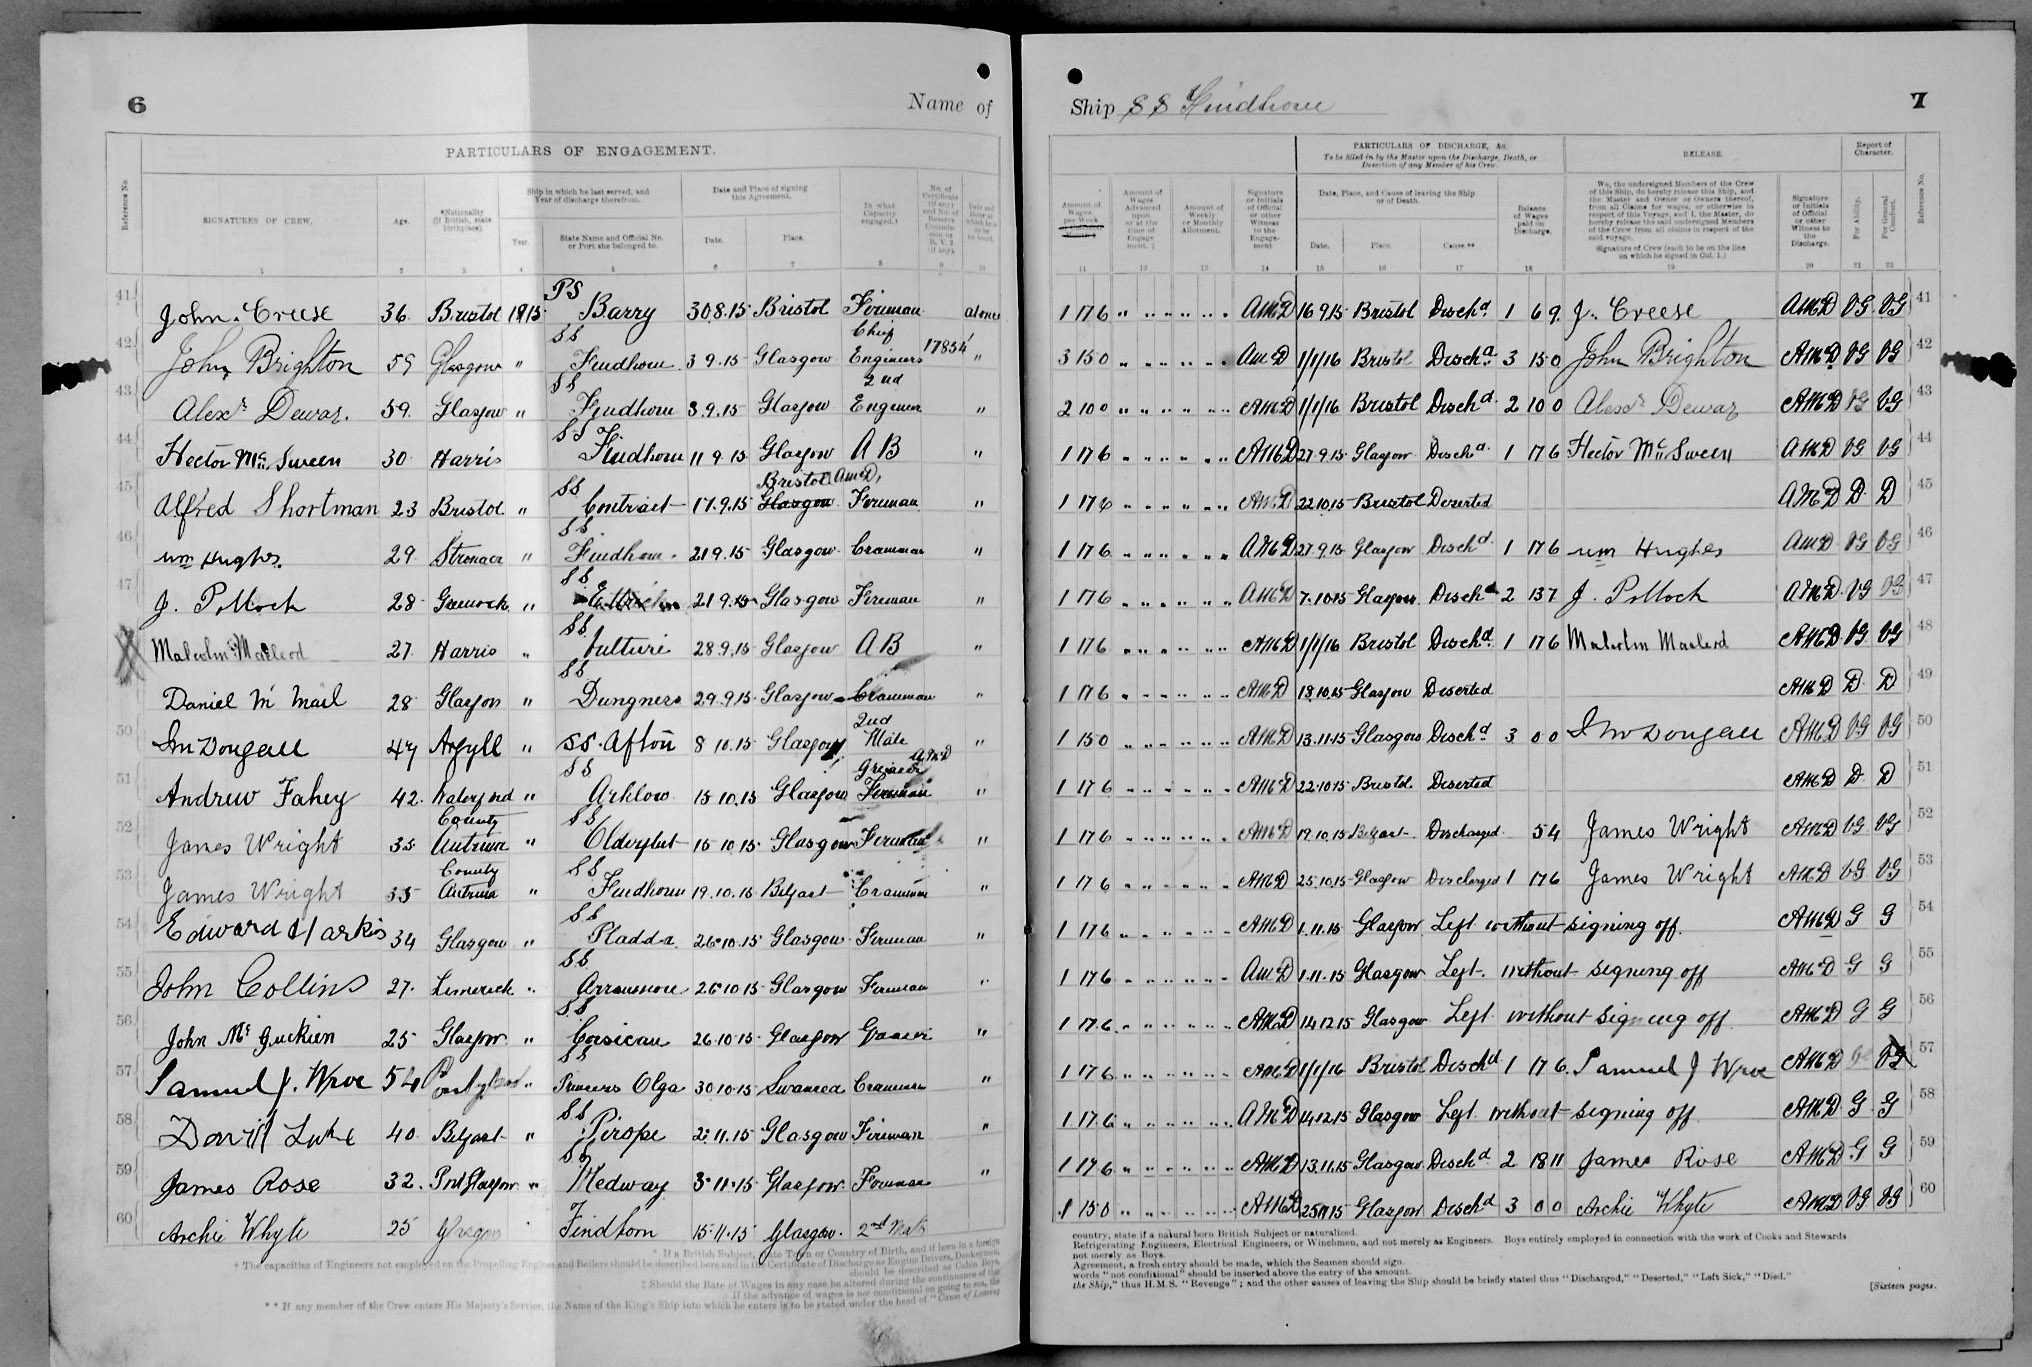 6
Name of
PARTICULARS OF ENGAGEMENT.
Reference No.
SIGNATURES OF CREW.
Age.
*Nationality (if British, state birthplace).
Ship in which he last served, and Year of discharge therefrom.
Year.
State Name and Official No. or Port she belonged to.
Date and Place of signing this Agreement.
Date.
Place.
In what Capacity engaged.†
1 2 3 4 5 6 7 8 9 10
41 John Creese 36 Bristol 1915 PS Barry 30.8.15 Bristol Fireman at once
42 John Brighton 59 Glasgow " SS Findhorn 3.9.15 Glasgow Chief Engineer 17854 "
43 Alexr Dewar. 59. Glasgow " SS Findhorn 3.9.15 Glasgow 2nd Engineer "
44 Hector McSween 30 Harris SS Findhorn 11.9.15 Glasgow A B "
45 Alfred Shortman 23 Bristol " SS Contract 17.9.15 Bristol AMcD Glasgow Fireman "
46 Wm Hughes. 29. " SS Findhorn 21.9.15 Glasgow Crewman "
47 J. Pollock 28 Greenock " SS 21.9.15 Glasgow Fireman "
Malcolm Macleod 27. Harris " SS Vulture 28.9.15 Glasgow A B "
Daniel Mc 28 Glasgow " SS Dungness 29.9.15 Glasgow "
50 McDougall 47 Argyll " SS. Afton 8.10.15 Glasgow 2nd Mate "
51 Andrew Fahey 42. Waterford " SS Arklow 15.10.15 Glasgow Greaser AMcD Fireman "
52 James Wright 35 County Antrim " SS 15.10.15 Glasgow Fireman "
53 James Wright 35 County Antrim " SS Findhorn 19.10.15 Belfast "
54 Edward Harkis 34 Glasgow " SS Pladda 26.10.15 Glasgow Fireman "
55 John Collins 27. Limerick " SS 26.10.15 Glasgow Fireman "
56 John McGuckien 25 Glasgow " SS Corsican 26.10.15 Glasgow Greaser "
57 Samuel J. Wroe 54 " SS Princess Olga 30.10.15 Swansea "
58 Luke 40. Belfast " SS Pirope 2.11.15 Glasgow Fireman "
59 James Rose 32. Port Glasgow " SS Medway 3.11.15 Glasgow Fireman "
60 Archie Whyte 25 Glasgow Findhorn 15.11.15 Glasgow. 2nd Mate
* If a British Subject, state Town or Country of Birth, and if born in a foreign
† The capacities of Engineers not employed on the Propelling Engines and Boilers should be described here and in the Certificate of Discharge as Engine Drivers, Donkeymen,
should be described as Cabin Boys,
‡ Should the Rate of Wages in any case be altered during the continuance of this
If the advance of wages is not conditional on going to sea, the
** If any member of the Crew enters His Majesty's Service, the Name of the King's Ship into which he enters is to be stated under the head of "Cause of Leaving
Ship SS Findhorn
7
PARTICULARS OF DISCHARGE, &c.
To be filled in by the Master upon the Discharge, Death, or Desertion of any Member of his Crew.
RELEASE.
Report of Character.
Amount of Wages per Week
Amount of Wages Advanced upon or at the time of Engagement.‡
Amount of Weekly or Monthly Allotment.
Signature or Initials of Official or other Witness to the Engagement
Date, Place, and Cause of leaving the Ship or of Death.
Date.
Place.
Cause.**
Balance of Wages paid on Discharge.
We, the undersigned Members of the Crew of this Ship, do hereby release this Ship, and the Master and Owner or Owners thereof, from all Claims for wages, or otherwise in respect of this Voyage; and I, the Master, do hereby release the said undersigned Members of the Crew from all claims in respect of the said voyage.
Signature of Crew (each to be on the line on which he signed in Col. 1.)
Signature or Initials of Official or other Witness to the Discharge.
For Ability.
For General Conduct.
Reference No.
11 12 13 14 15 16 17 18 19 20 21 22
1 17 6 AMcD 16.9.15 Bristol Dischd 1 6 9 J. Creese AMcD VG VG 41
3 15 0 AMcD 1/1/16 Bristol Dischd 3 15 0 John Brighton AMcD VG VG 42
2 10 0 AMcD 1/1/16 Bristol Dischd 2 10 0 Alexr Dewar AMcD VG VG 43
1 17 6 AMcD 27.9.15 Glasgow Dischd 1 17 6 Hector McSween AMcD VG VG 44
1 17 6 AMcD 22.10.15 Bristol Deserted AMcD D. D 45
1 17 6 AMcD 27.9.15 Glasgow Dischd 1 17 6 Wm Hughes AMcD VG VG 46
1 17 6 AMcD 7.10.15 Glasgow Dischd 2 13 7 J. Pollock AMcD VG VG 47
1 17 6 AMcD 1/1/16 Bristol Dischd 1 17 6 Malcolm Macleod AMcD VG VG 48
1 17 6 AMcD 13.10.15 Glasgow Deserted AMcD D. D 49
1 15 0 AMcD 13.11.15 Glasgow Dischd 3 0 0 McDougall AMcD VG VG 50
1 17 6 AMcD 22.10.15 Bristol Deserted AMcD D. D 51
1 17 6 AMcD 19.10.15 Belfast Discharged 5 4 James Wright AMcD VG VG 52
1 17 6 AMcD 25.10.15 Glasgow Discharged 1 17 6 James Wright AMcD VG VG 53
1 17 6 AMcD 1.11.15 Glasgow Left without signing off. AMcD G G 54
1 17 6 AMcD 1.11.15 Glasgow Left without signing off AMcD G G 55
1 17 6 AMcD 14.12.15 Glasgow Left without signing off AMcD G G 56
1 17 6 AMcD 1/1/16 Bristol Dischd 1 17 6 Samuel J Wroe AMcD VG VG 57
1 17 6 AMcD 14.12.15 Glasgow Left without signing off AMcD G G 58
1 17 6 AMcD 13.11.15 Glasgow Dischd 2 18 11 James Rose AMcD G G 59
1 15 0 AMcD Glasgow Dischd 3 0 0 Archie Whyte AMcD VG VG 60
country, state if a natural born British Subject or naturalized.
Refrigerating Engineers, Electrical Engineers, or Winchmen, and not merely as Engineers. Boys entirely employed in connection with the work of Cooks and Stewards
not merely as Boys.
Agreement, a fresh entry should be made, which the Seamen should sign.
words "not conditional" should be inserted above the entry of the amount.
the Ship," thus H.M.S. "Revenge"; and the other causes of leaving the Ship should be briefly stated thus "Discharged," "Deserted," "Left Sick," "Died."
[Sixteen pages.